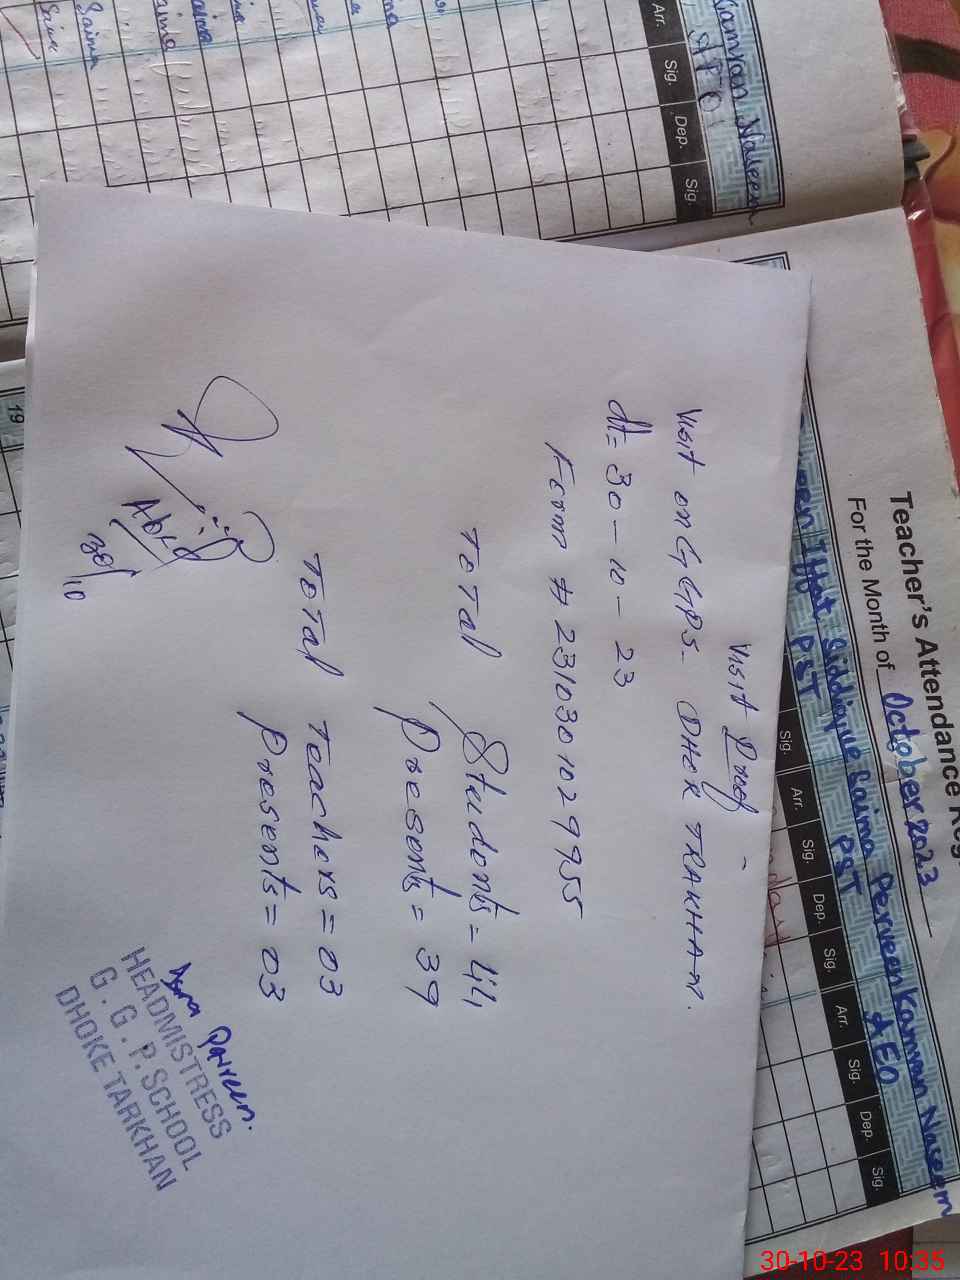 Visit Proof
Visit on GGPS. DHOK TRAKHAN.
dt = 30-10-23
Form # 23103010 29955
Total Students = 44
Presents = 39
Total Teachers = 03
Presents = 03
30/10
Asma Parveen.
HEADMISTRESS
G. G. P. SCHOOL
DHOKE TARKHAN
Teacher's Attendance Reg
For the Month of October 2023
Siddique Saima Perveen Kamran Naseem
PST PST AEO
Sig. Arr. Sig. Dep. Sig. Arr. Sig. Dep. Sig.
Kamran Naseem
AEO
Arr. Sig. Dep. Sig.
Saima
Saima
19
30-10-23 10:35